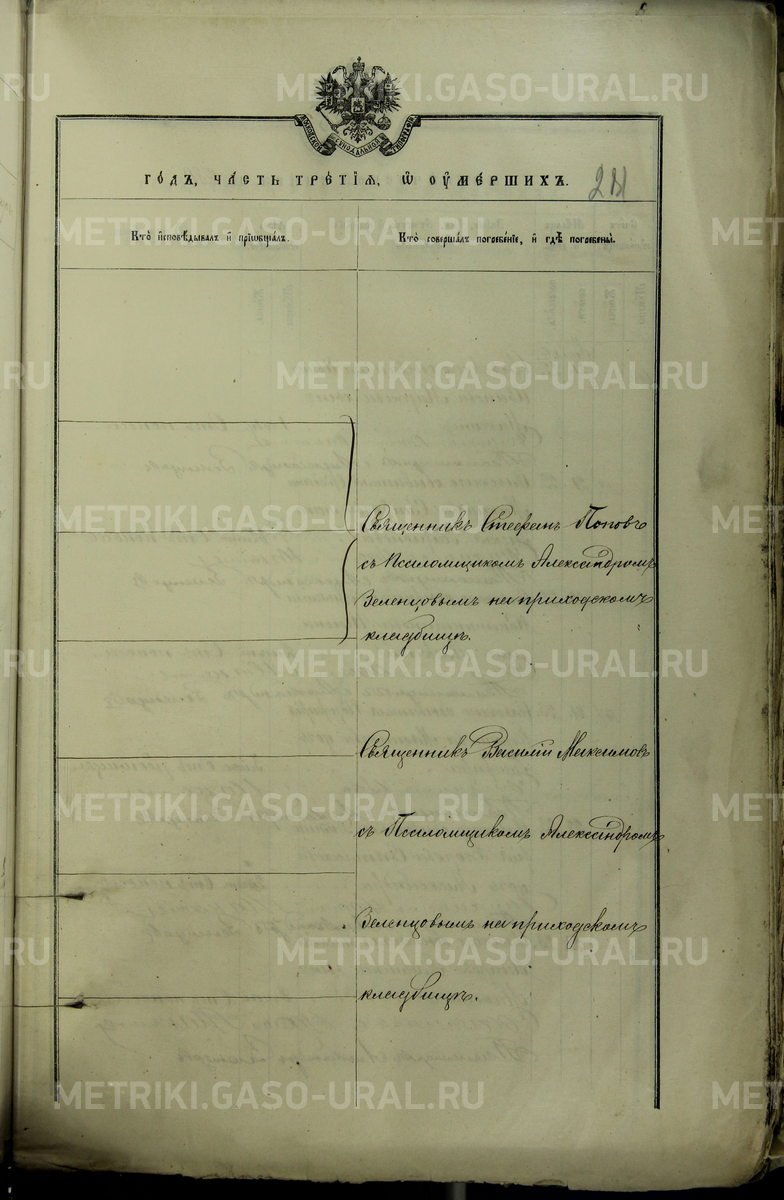 МОСКОВСКОЙ СѴНОДАЛЬНОЙ ТИПОГРАФІИ
го́дъ, ча́сть тре́тїѧ, ѡ҆ ᲂу҆ме́ршихъ.
Кто̀ и҆сповѣ́дывалъ и҆ прїѡбща́лъ.
Кто̀ соверша́лъ погребе́нїе, и҆ гдѣ̀ погребены̀.
Священникъ Стефанъ Поповъ
съ Псаломщикомъ Александромъ
Зеленцовымъ на приходскомъ
кладбищѣ.
Священникъ Василій Максимовъ
съ Псаломщикомъ Александромъ
Зеленцовымъ на приходскомъ
кладбищѣ.
METRIKI.GASO-URAL.RU